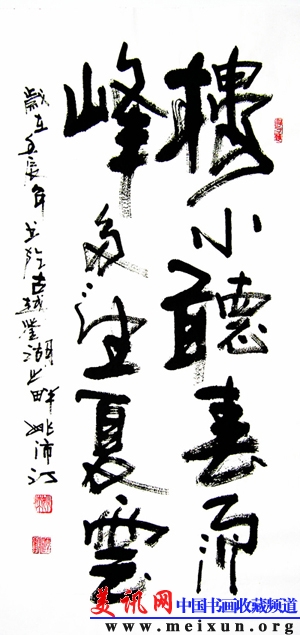 樓小聽春雨
峰多望夏雲
歲在壬辰年書於古越鑒湖之畔姚沛江
美讯网 中国书画收藏频道
www.meixun.org